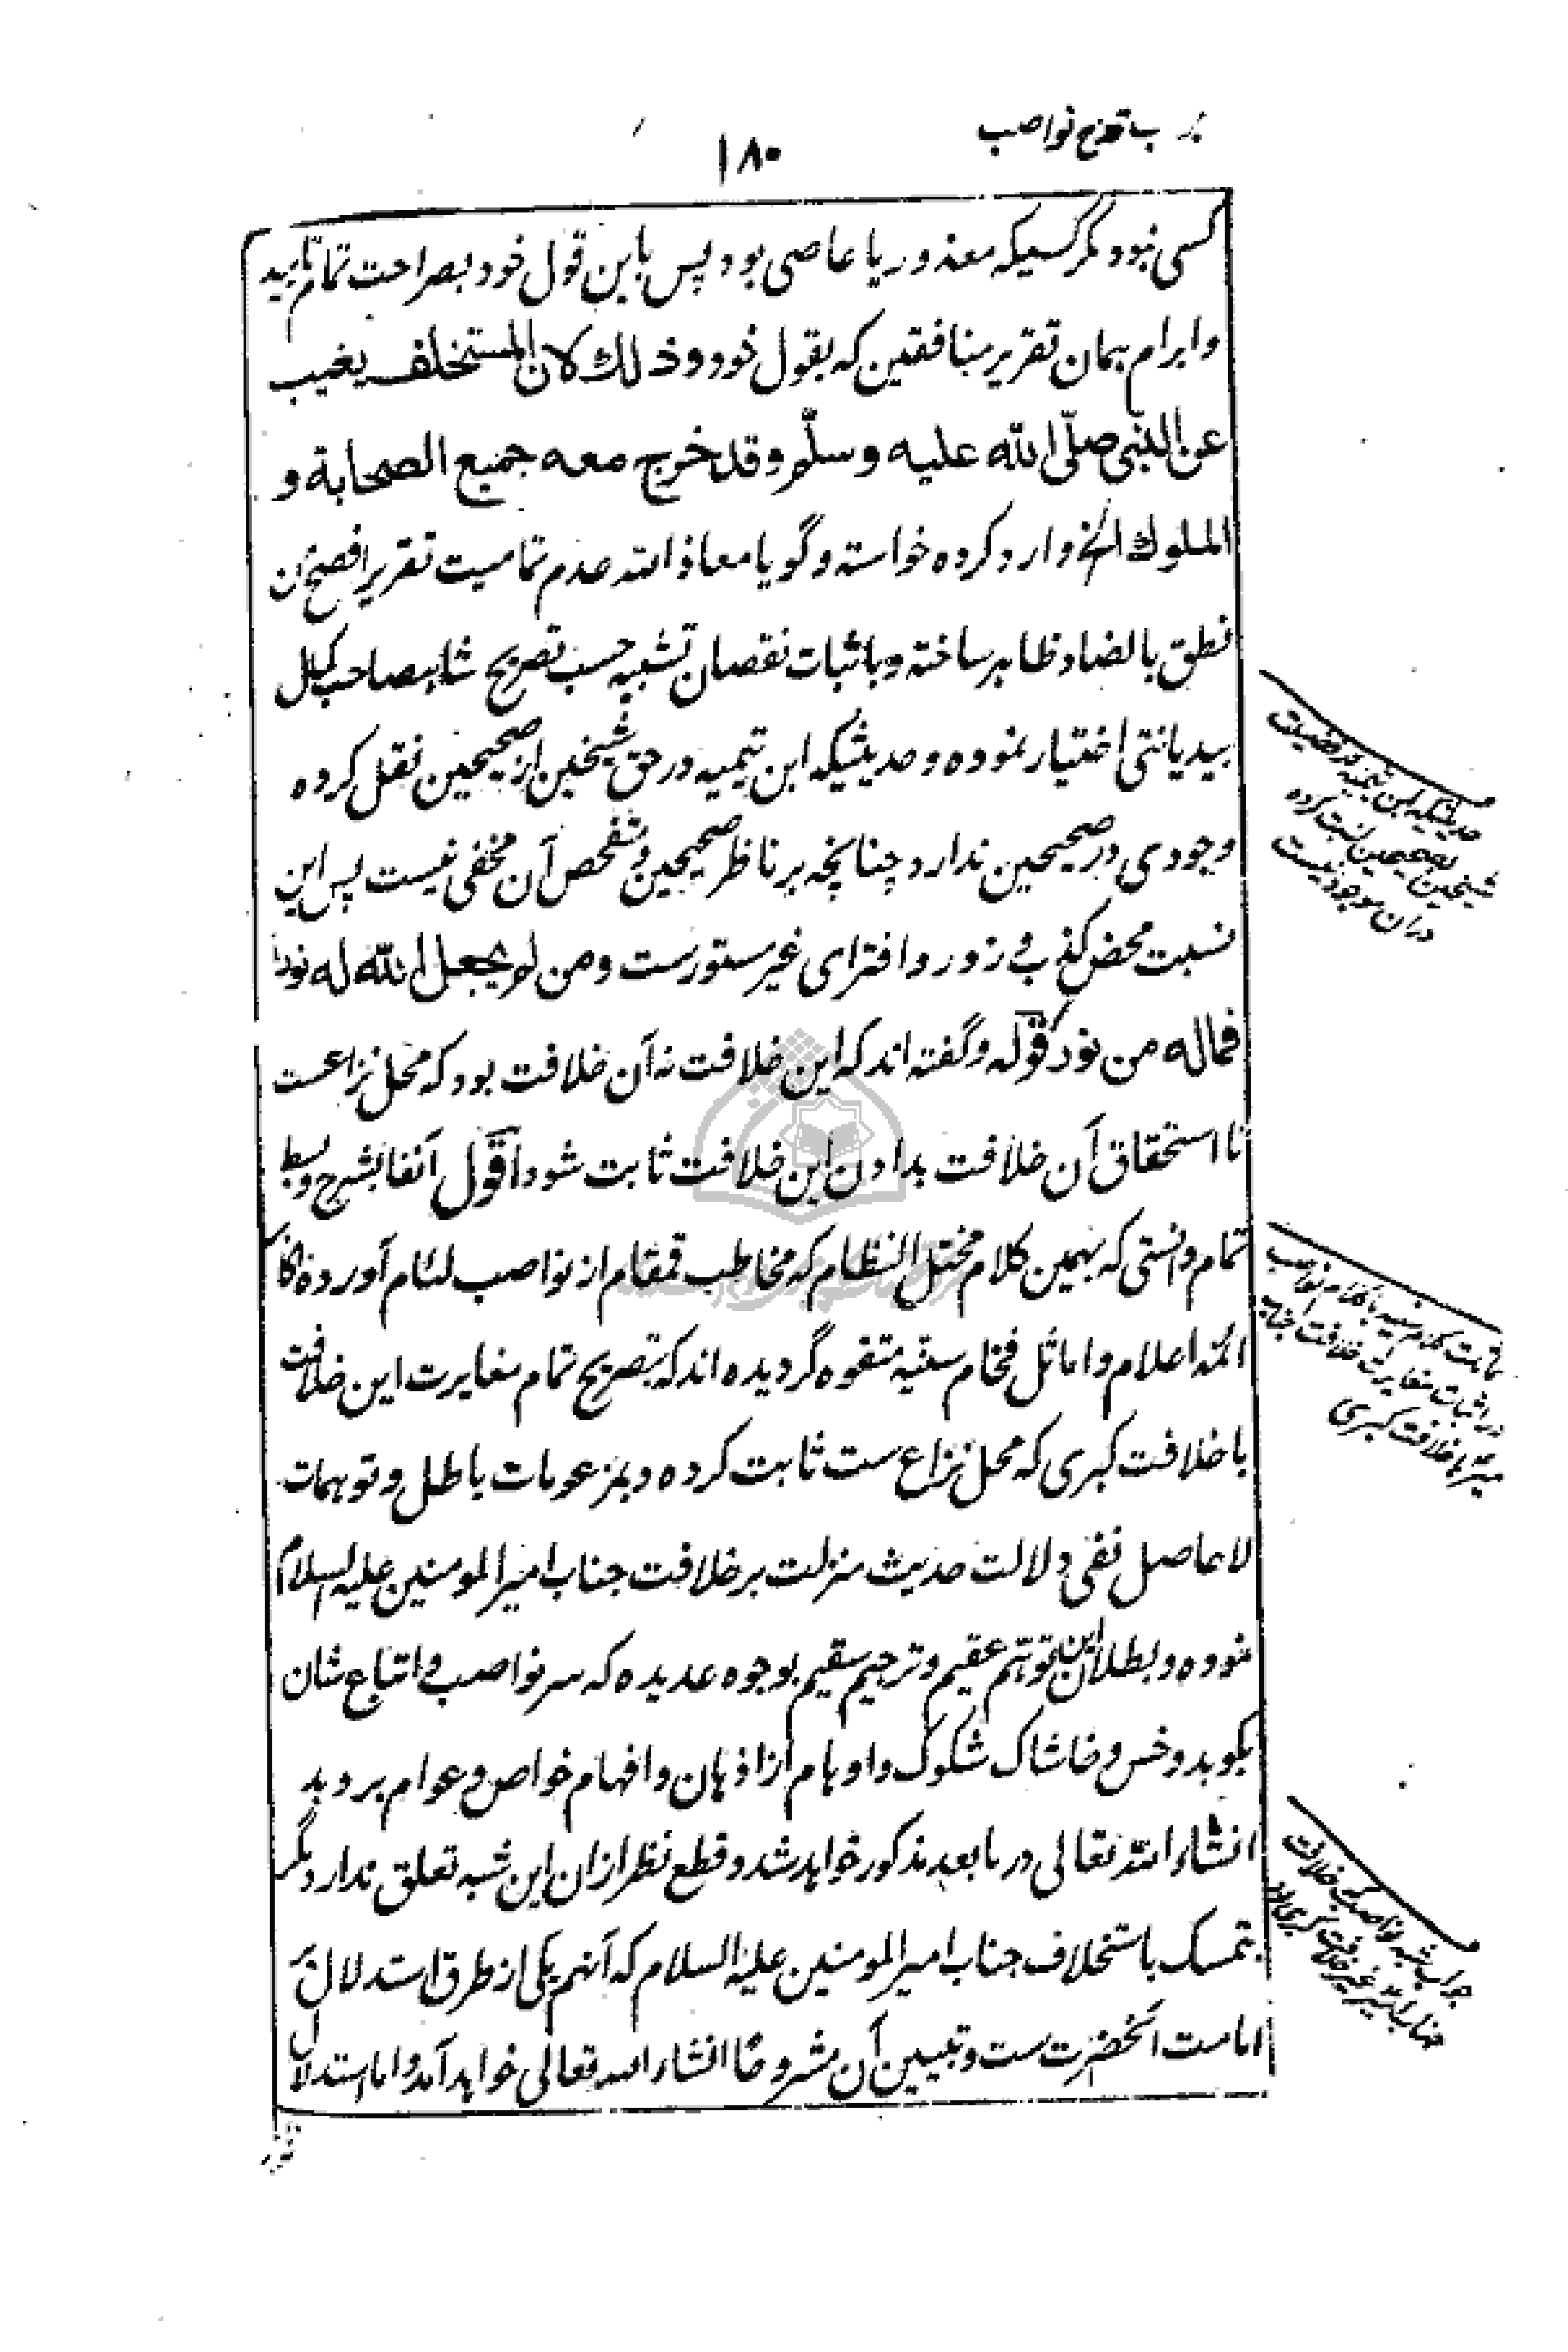 قدح نواصب
۱۸۰
کسی نبود مگر کسیکه معذور یا عاصی بود پس باین قول خود بصراحت تمام تایید
و ابرام همان تقریر منافقین که بقول خود وذلك لان المستخلف يغيب
عن النبي صلّى الله عليه وسلّم وقد خرج معه جميع الصحابة و
الملوك الخ وارد کرده خواسته و گویا معاذ الله عدم تمامیت تقریر افصح من
نطق بالضاد ظاهر ساخته و باثبات نقصان تشبیه حسب تصریح شاهصاحب کمال
بیدیانتی اختیار نموده و حدیثیکه ابن تیمیه در حق شیخین از صحیحین نقل کرده
وجودی در صحیحین ندارد چنانچه بر ناظر صحیحین و متفحص آن مخفی نیست پس این
نسبت محض کذب و زور و افترای غیر مستورست ومن لم يجعل الله له نورا
فما له من نور قوله و گفته اند که این خلافت نه آن خلافت بود که محل نزاعست
تا استحقاق آن خلافت بدادن این خلافت ثابت شود اقول آنفا بشرح و بسط
تمام دانستی که بهمین کلام مختل النظام که مخاطب قمقام از نواصب لئام آورده
ائمه اعلام و اماثل فخام سنیه متفوه گردیده اند که بتصریح تمام مغایرت این خلافت
با خلافت کبری که محل نزاع ست ثابت کرده و بمزعومات باطل و توهمات
لا حاصل نفی دلالت حدیث منزلت بر خلافت جناب امیر المومنین علیه السلام
نموده و بطلان این توهّم عقیم و ترجیم سقیم بوجوه عدیده که سر نواصب و اتباع شان
بکوبد و خس و خاشاک شکوک و اوهام از اذهان و افهام خواص و عوام بروبد
انشاء الله تعالی در ما بعد مذکور خواهد شد و قطع نظر ازان این شبه تعلق ندارد مگر
بتمسک باستخلاف جناب امیر المومنین علیه السلام که آنهم یکی از طرق استدلال بر
امامت آنحضرت ست و تبیین آن مشروحًا انشاء الله تعالی خواهد آمد و اما استدلال
حدیثیکه ابن تیمیه در فضیلت
شیخین بصحیحین نسبت کرده
دران موجود نیست
مماثلت کلام سنیه با کلام نواصب
در اثبات مغایرت خلافت جناب
امیر با خلافت کبری
جواب شبه نواصب که خلافت
جناب امیر غیر خلافت کبری بود